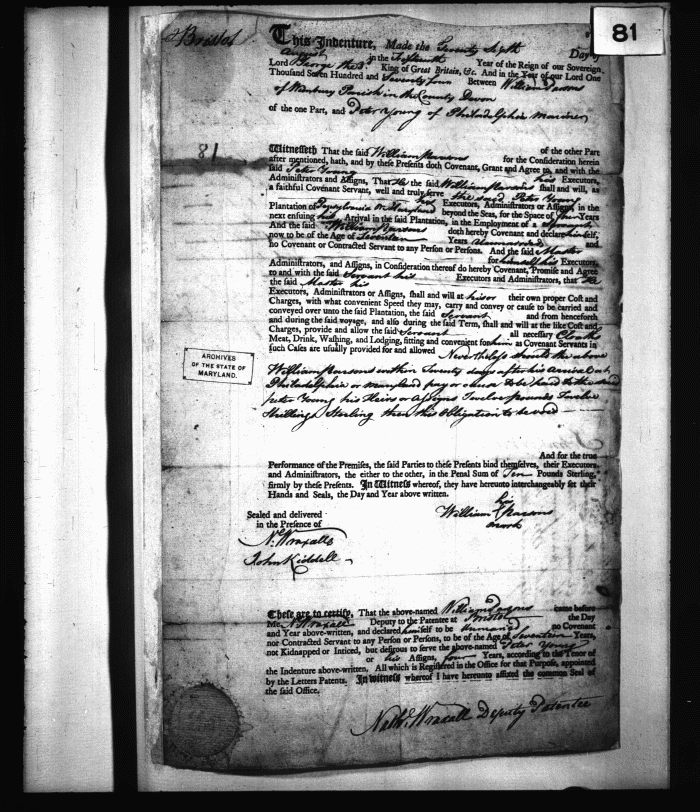 81
Bristol
This Indenture, Made the Twenty Sixth Day of
August in the fifteenth Year of the Reign of our Sovereign
Lord George the 3d King of Great Britain, &c. And in the Year of our Lord One
Thousand Seven Hundred and Seventy four Between William Parsons
of Membury Parish in the County Devon
of the one Part, and Peter Young of Philadelphia Mariner
of the other Part
81
Witnesseth That the said William Parsons for the Consideration herein
after mentioned, hath, and by these Presents doth Covenant, Grant and Agree to, and with the
said Peter Young his Executors,
Administrators and Assigns, That He the said William Parsons shall and will, as
a faithful Covenant Servant, well and truly serve the said Peter Young
his Executors, Administrators or Assigns, in the
Plantation of Pensylvania or Maryland beyond the Seas, for the Space of four Years
next ensuing his Arrival in the said Plantation, in the Employment of a Servant
And the said William Parsons doth hereby Covenant and declare himself,
now to be of the Age of Seventeen Years Unmarried and
no Covenant or Contracted Servant to any Person or Persons. And the said Master
for himself his Executors,
Administrators, and Assigns, in Consideration thereof do hereby Covenant, Promise and Agree
to and with the said Servant his Executors and Administrators, that he
the said Master his
Executors, Administrators or Assigns, shall and will at his or their own proper Cost and
Charges, with what convenient Speed they may, carry and convey or cause to be carried and
conveyed over unto the said Plantation, the said Servant and from henceforth
and during the said voyage, and also during the said Term, shall and will at the like Cost and
Charges, provide and allow the said Servant all necessary Cloaths
Meat, Drink, Washing, and Lodging, fitting and convenient for him as Covenant Servants in
such Cases are usually provided for and allowed Nevertheless should the above
William Parsons within Twenty days after his Arrival at
Philadelphia or maryland pay or cause to be paid to the said
peter Young his Heirs or Assigns Twelve pounds Twelve
Shillings Sterling then this Obligation to be void
ARCHIVES
OF THE STATE OF
MARYLAND.
And for the true
Performance of the Premises, the said Parties to these Presents bind themselves, their Executors
and Administrators, the either to the other, in the Penal Sum of Ten Pounds Sterling,
firmly by these Presents. In Witness whereof, they have hereunto interchangeably set their
Hands and Seals, the Day and Year above written.
Sealed and delivered
in the Presence of
his
William Parsons
mark
N. Wraxall
John Kiddell
These are to certify, That the above-named William Parsons came before
Me N. Wraxall Deputy to the Patentee at Bristol the Day
and Year above-written, and declared himself to be Unmarried no Covenant
nor Contracted Servant to any Person or Persons, to be of the Age of Seventeen Years,
not Kidnapped or Inticed, but desirous to serve the above-named Peter Young
or his Assigns, four Years, according to the Tenor of
the Indenture above-written. All which is Registered in the Office for that Purpose, appointed
by the Letters Patents. In witness whereof I have hereunto affixed the common Seal of
the said Office.
Nath. Wraxall Deputy Patentee